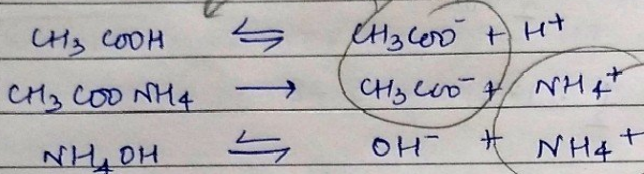 CH3 COOH ⇌ CH3COO⁻ + H⁺
CH3 COO NH4 → CH3COO⁻ + NH4⁺
NH4 OH ⇌ OH⁻ + NH4⁺